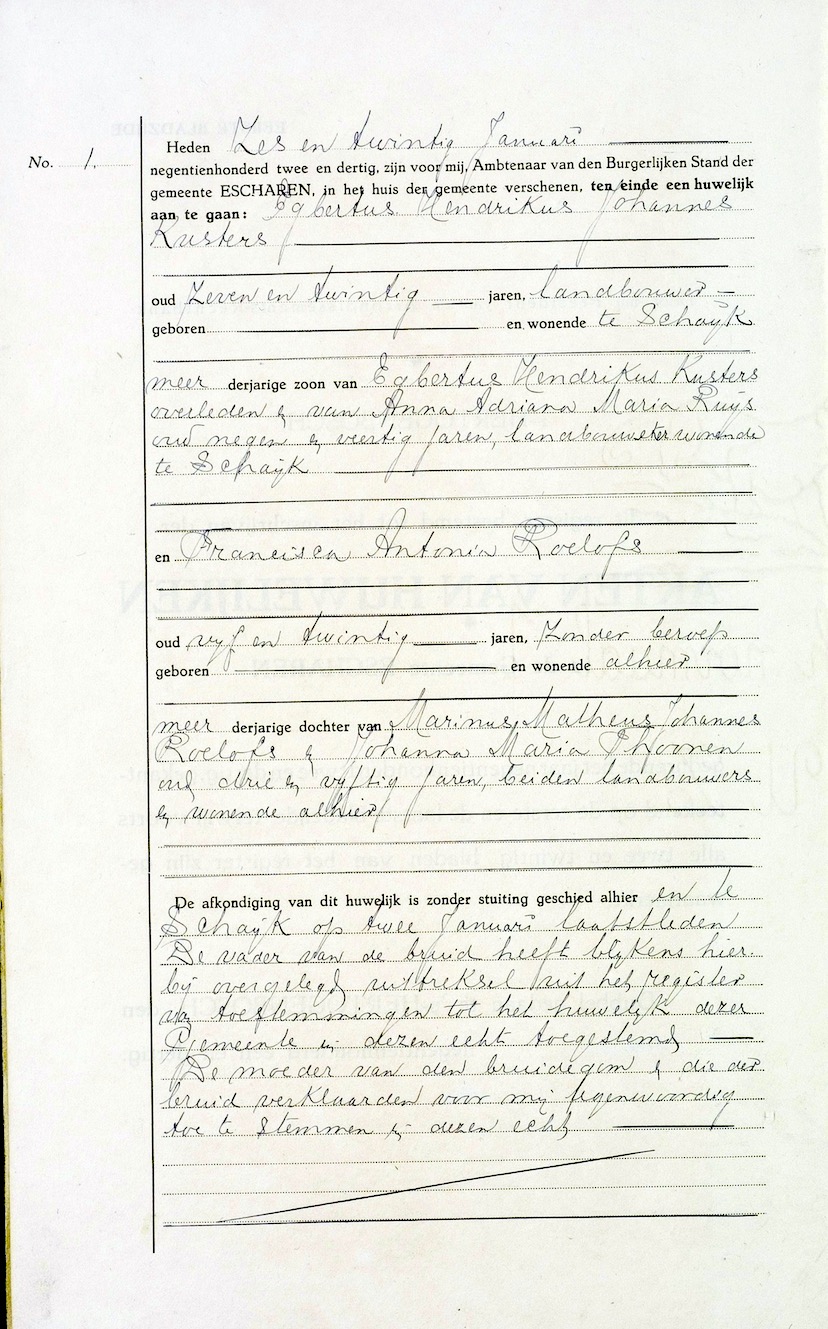 No. 1.
Heden Zes en twintig Januari
negentienhonderd twee en dertig, zijn voor mij, Ambtenaar van den Burgerlijken Stand der
gemeente ESCHAREN, in het huis der gemeente verschenen, ten einde een huwelijk
aan te gaan: Egbertus Hendrikus Johannes
Kusters
oud Zeven en twintig jaren, landbouwer
geboren en wonende te Schayk
meer derjarige zoon van Egbertus Hendrikus Kusters
overleden & van Anna Adriana Maria Ruijs
oud negen & veertig jaren, landbouwster wonende
te Schayk
en Francisca Antonia Roelofs
oud vyf en twintig jaren, Zonder beroep
geboren en wonende alhier
meer derjarige dochter van Marinus Matheus Johannes
Roelofs & Johanna Maria Thoonen
oud drie & vyftig jaren, beiden landbouwers
& wonende alhier
De afkondiging van dit huwelijk is zonder stuiting geschied alhier en te
Schayk op twee Januari laatstleden
De vader van de bruid heeft blykens hier-
bij overgelegd uittreksel uit het register
van toestemmingen tot het huwelyk dezer
Gemeente in dezen echt toegestemd
De moeder van den bruidegom & die der
bruid verklaarden voor mij tegenwoordig
toe te stemmen in dezen echt